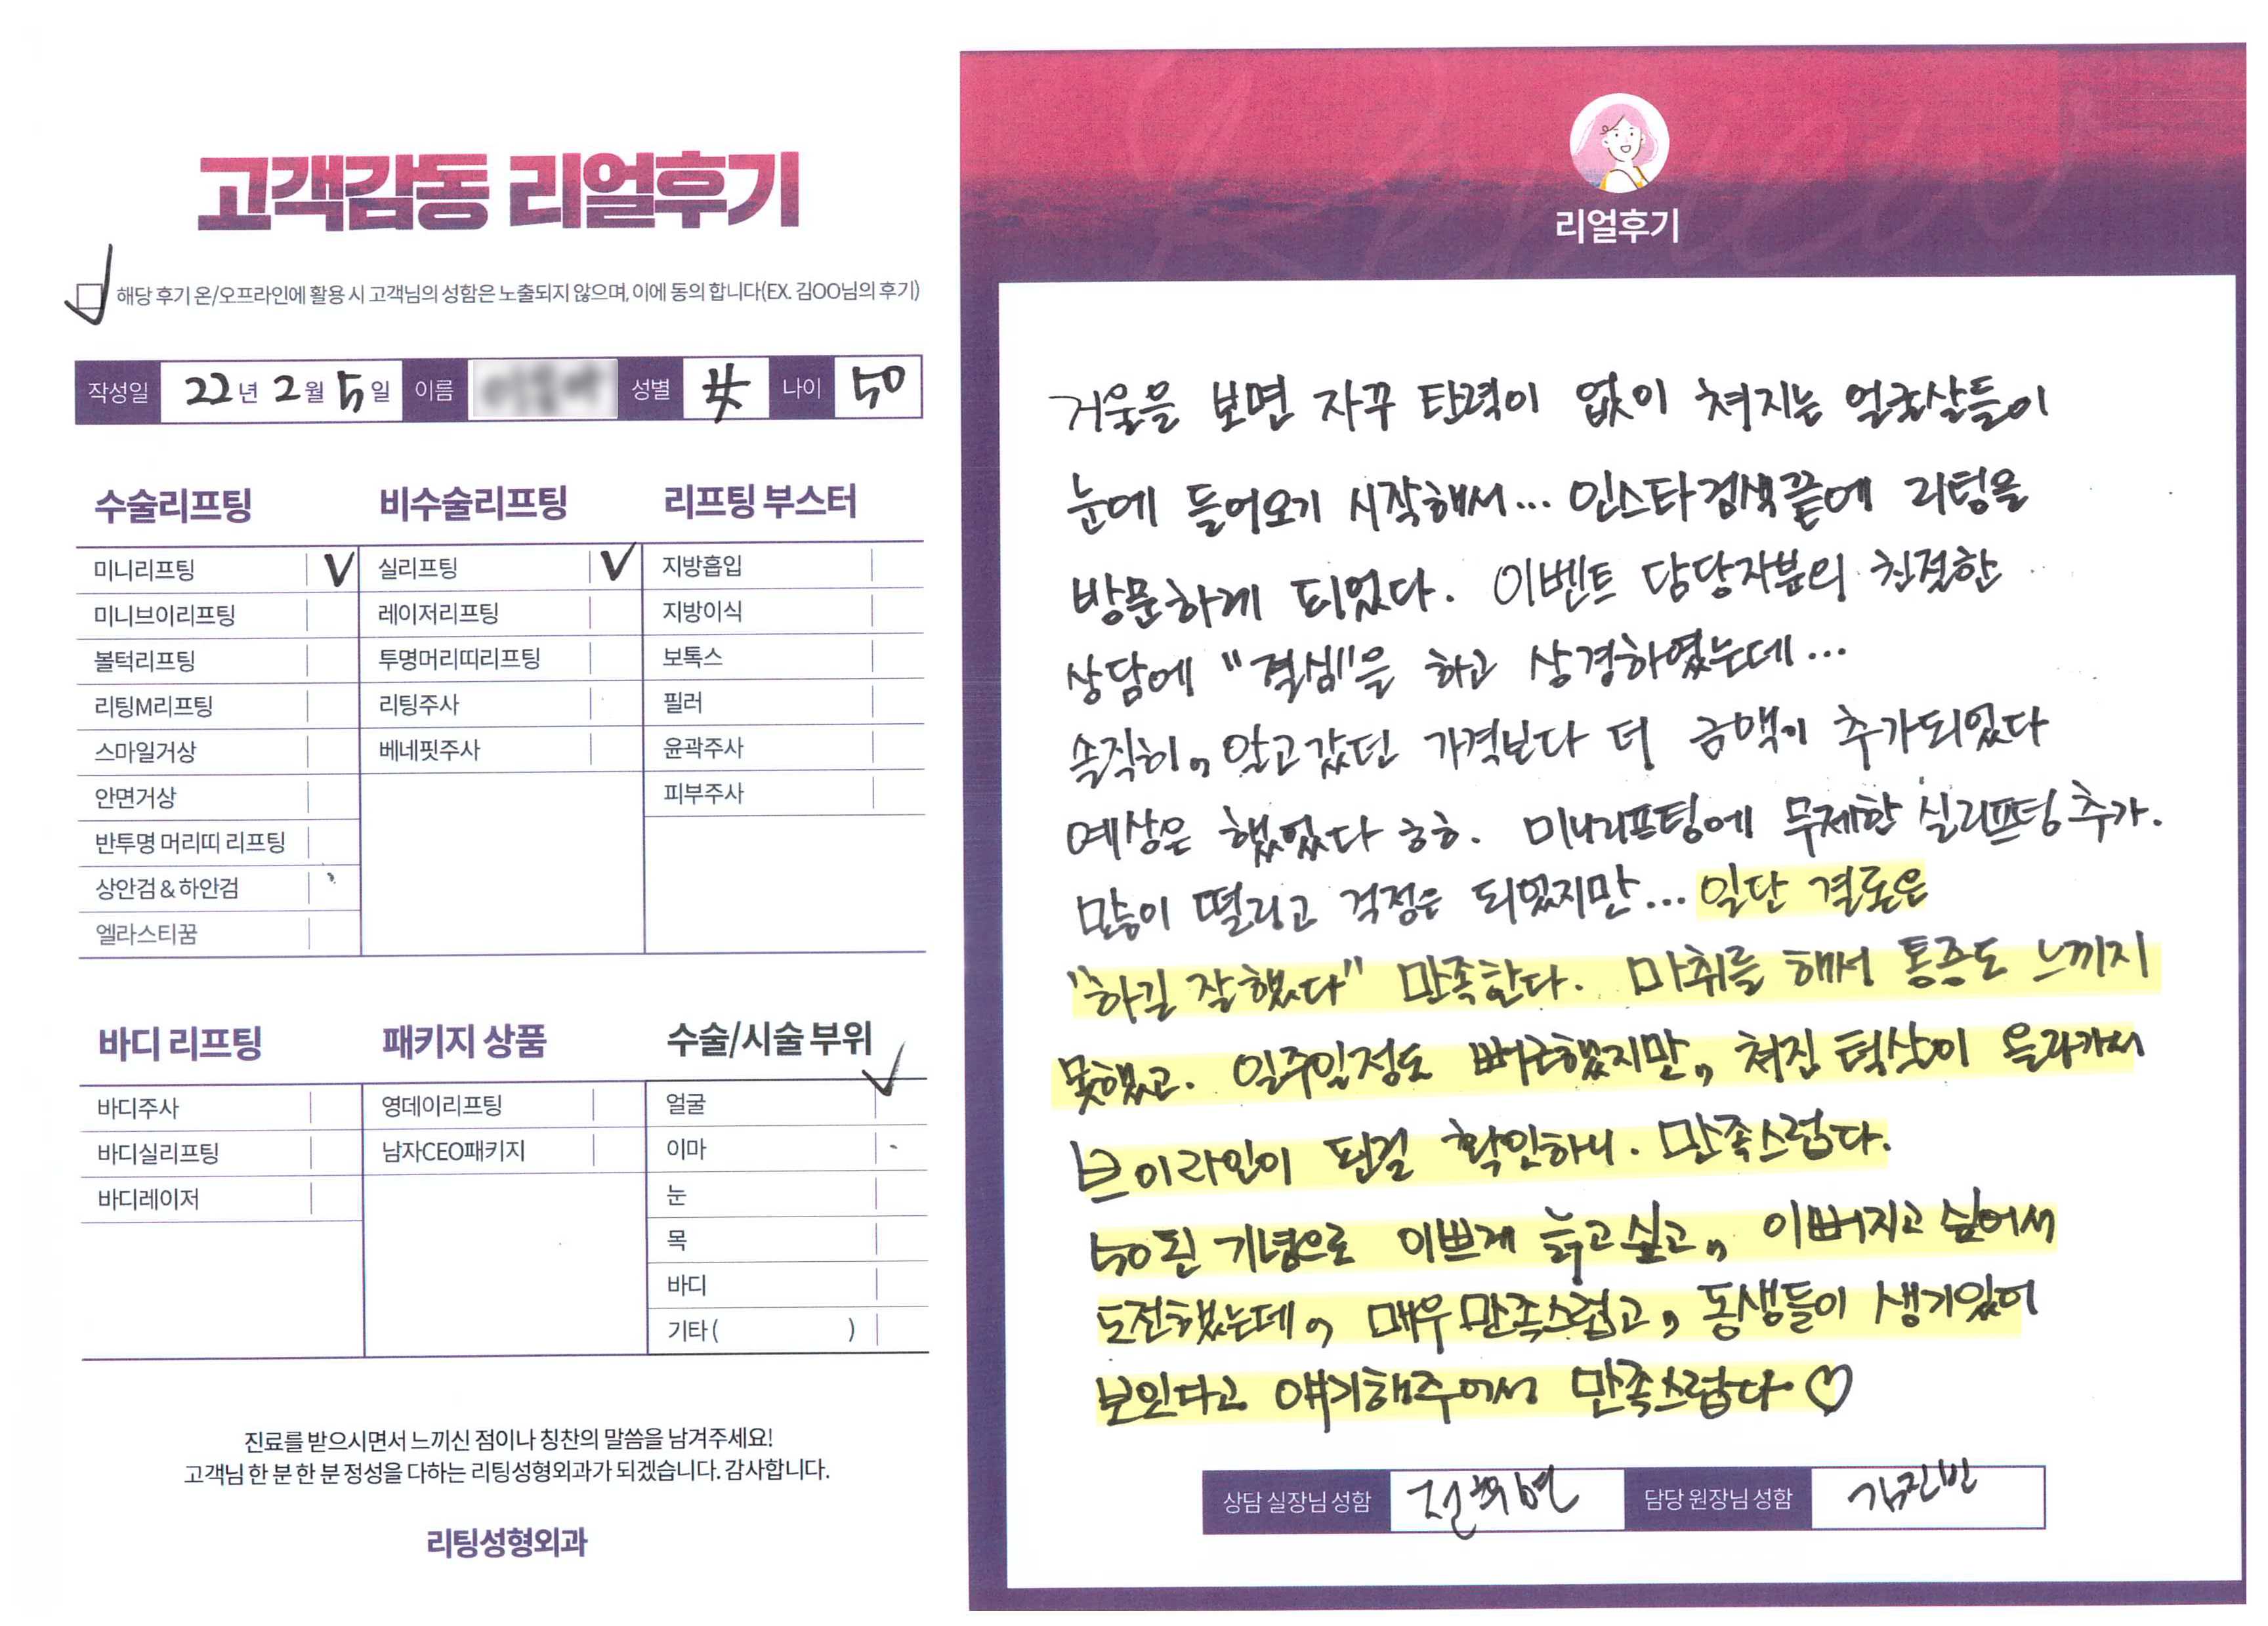 고객감동 리얼후기
해당 후기 온/오프라인에 활용 시 고객님의 성함은 노출되지 않으며, 이에 동의 합니다(EX. 김OO님의 후기)
작성일 22년 2월 5일 이름 성별 女 나이 50
수술리프팅
미니리프팅 V
미니브이리프팅
볼턱리프팅
리팅M리프팅
스마일거상
안면거상
반투명 머리띠 리프팅
상안검 & 하안검
엘라스티꿈
비수술리프팅
실리프팅 V
레이저리프팅
투명머리띠리프팅
리팅주사
베네핏주사
리프팅 부스터
지방흡입
지방이식
보톡스
필러
윤곽주사
피부주사
바디 리프팅
바디주사
바디실리프팅
바디레이저
패키지 상품
영데이리프팅
남자CEO패키지
수술/시술 부위
얼굴
이마
눈
목
바디
기타 ( )
진료를 받으시면서 느끼신 점이나 칭찬의 말씀을 남겨주세요!
고객님 한 분 한 분 정성을 다하는 리팅성형외과가 되겠습니다. 감사합니다.
리팅성형외과
리얼후기
거울을 보면 자꾸 탄력이 없이 쳐지는 얼굴살들이
눈에 들어오기 시작해서... 인스타검색끝에 리팅을
방문하게 되었다. 이벤트 담당자분의 친절한
상담에 "결심"을 하고 상경하였는데...
솔직히, 알고갔던 가격보다 더 금액이 추가되었다
예상은 했었다 ㅎㅎ. 미니리프팅에 무제한 실리프팅 추가.
많이 떨리고 걱정은 되었지만... 일단 결론은
"하길 잘했다" 만족한다. 마취를 해서 통증도 느끼지
못했고. 일주일정도 뻐근했지만, 쳐진 턱살이 올라가서
브이라인이 된걸 확인하니. 만족스럽다.
50된 기념으로 이쁘게 늙고싶고, 이뻐지고 싶어서
도전했는데, 매우 만족스럽고, 동생들이 생기있어
보인다고 얘기해주어서 만족스럽다 ♡
상담 실장님 성함 담당 원장님 성함 김진빈